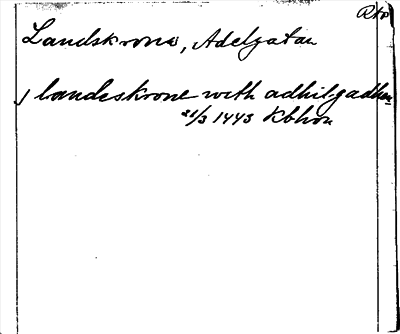 Landskrona, Adelgatan
J landeskrone with adhilgadhen
21/3 1443 Kbhvn